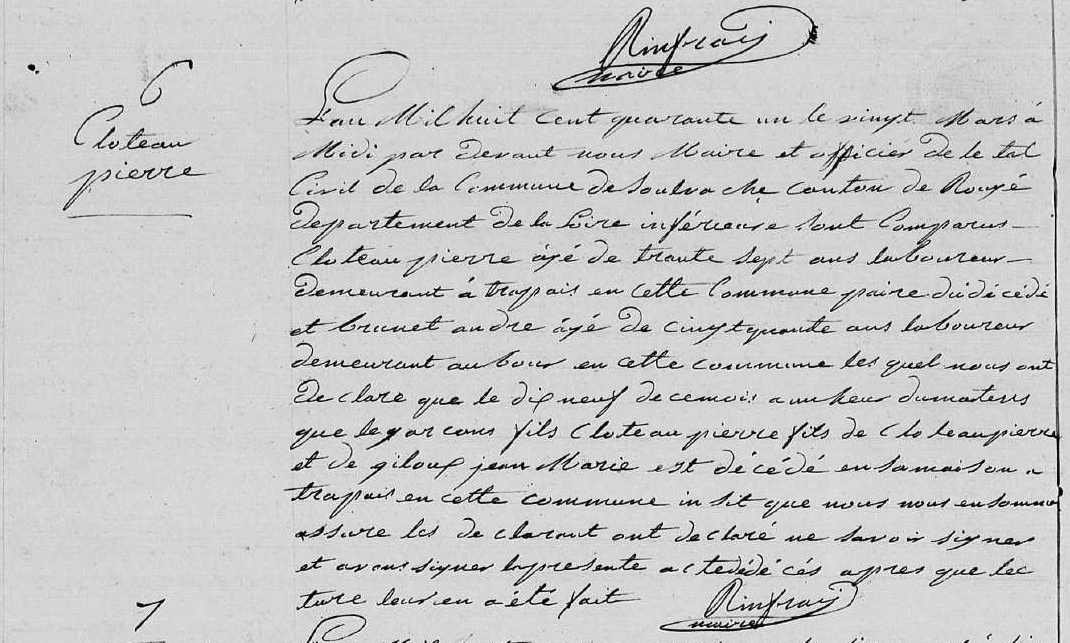 Rinfrais
maire
6
Cloteau
pierre
L'an Mil huit cent quarante un le vingt Mars à
Midi par devant nous Maire et officier de le tal
Civil de la Commune de Soulvache canton de Rougé
departement de la Loire inférieure sont Comparus
Cloteau pierre âgé de trante sept ans laboureur
demeurant à trapais en cette Commune paire du décédé
et brunet andre âgé de cinqtquante ans laboureur
demeurant au bour en cette commune les quel nous ont
de clare que le dix neuf de ce mois a un heur du matens
que le garcons fils Cloteau pierre fils de Cloteau pierre
et de giloux jean Marie est décédé en sa maison a
trapais en cette commune in sit que nous nous en somme
assure les de clarant ont declaré ne savoir signer
et avons signer la présente acte dédécés apres que lec
ture leur en a été fait
Rinfrais
maire
7